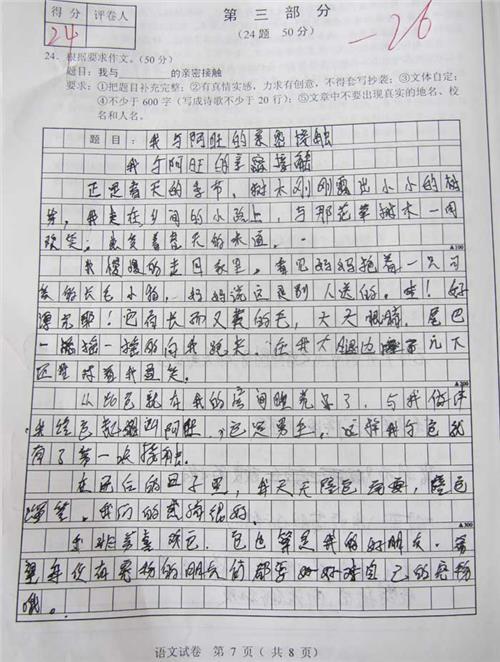 得分 评卷人
24
第三部分
(24题 50分)
-26
24. 根据要求作文。(50分)
题目:我与________的亲密接触
要求:①把题目补充完整;②有真情实感,力求有创意,不得套写抄袭;③文体自定;
④不少于600字(写成诗歌不少于20行);⑤文章中不要出现真实的地名、校
名和人名。
题目:我与阿旺的亲密接触
我与阿旺的亲密接触
正是春天的季节,树木刚刚露出小小的树
芽,我走在乡间的小路上,与那花草树木一同
欢笑。感受着春天的味道。
▲100
我慢慢的走回家里,看见妈妈抱着一只可
爱的长毛小狗,妈妈说这是别人送的。哇!好
漂亮耶!它有长而又黄的毛,大大眼睛,尾巴
一摇一摇的向我跑来,在我大腿边
▲200
从此它就在我的房间
有了第一次接触。
在以后的日子里,我天天陪它玩耍,陪它
。我们的感情很好。
▲300
我非常喜欢它,它也算是我的好朋友。希
望养便有宠物的朋友们都要好好对自己的宠物
哦。
语文试卷 第7页(共8页)